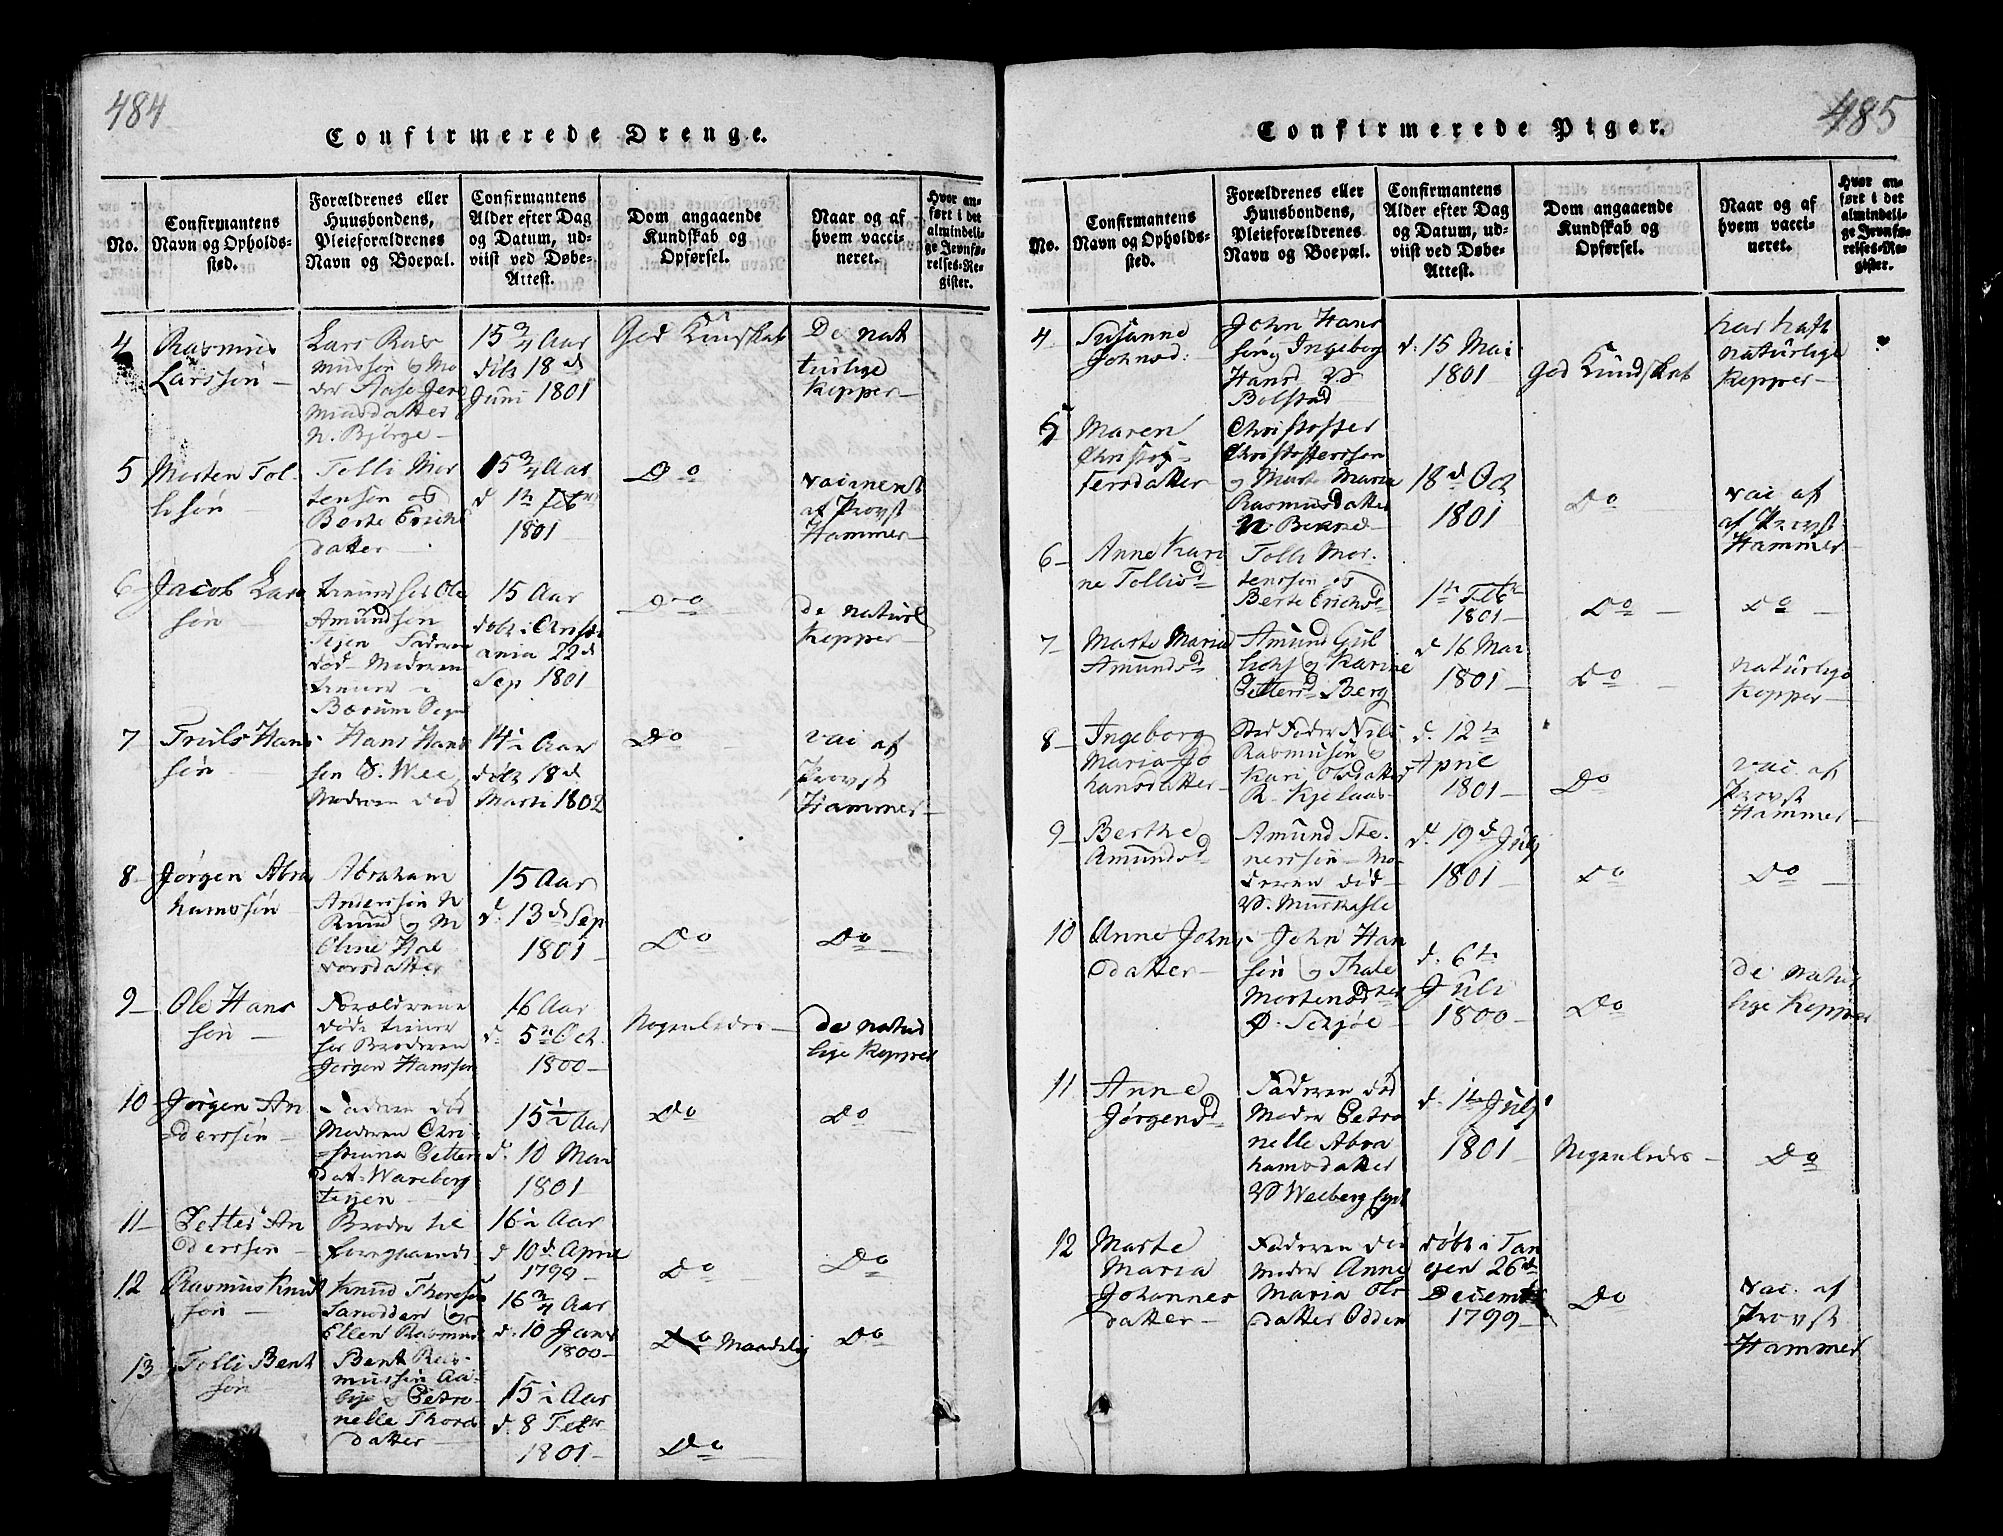 484
Confirmerede Drenge.
No.
Confirmantens
Navn og Opholds-
sted.
Forældrenes eller
Huusbondens,
Pleieforældrenes
Navn og Boepæl.
Confirmantens
Alder efter Dag
og Datum, ud-
viist ved Døbe-
Attest.
Dom angaaende
Kundskab og
Opførsel.
Naar og af
hvem vacci-
neret.
Hvor an-
ført i det
almindeli-
ge Jevnfø-
relses-Re-
gister.
4
Rasmus
Larssøn —
Lars Ras
mussen & Mo
der Aase Jere
miasdatter
N. Bjørge —
15 3/4 Aar
døbt 18 d
Juni 1801
God Kundskab
De nat
turlige
Kopper —
5
Morten Tol-
lesøn
Tolli Mor
tensøn og
Berte Erichs
datter —
15 3/4 Aar
d 1te Febr
1801
Do
vaccineret
af Provst
Hammer —
6
Jacob Lars
søn —
Ole
Amundsøn
Faderen
død — Moderen
tiener i
Bærum
15 Aar
døbt i Christi
ania 22 d
Sep 1801
Do
de naturl
Kopper —
7
Truls Hans
søn —
Hans Hans
søn Ø. Wee
Moderen død
14 1/2 Aar
døbt 18 d
Marti 1802
Do
vac af
Provst
Hammer —
8 —
Jørgen Abra
hamssøn —
Abraham
Anderssøn N
Ruud og M
Eline Hal
vorsdatter
15 Aar
d. 13 d Sep
1801 —
Do
Do —
9 —
Ole Hans
søn —
Forældrene
døde tiener
hos Broderen
Jørgen Hanssøn
16 Aar
d. 5te Oct.
1800 —
Nogenledes —
de natur
lige Kopper
10
Jørgen An
derssøn —
Faderen død
Moderen Chri
stiana Petters
dat. Wareberg
eyen —
15 1/2 Aar
d. 10 Mai
1801 —
Do
Do
11 —
Petter An
derssøn —
Broder til
foregaaende
16 1/2 Aar
d 10 d April
1799 —
Do
Do
12
Rasmus Knud
søn —
Knud Thoresøn
Sanodden og
Ellen Rasmusd
16 3/4 Aar
d. 10 Janr
1800 —
Do Maadelig
Do
13
Tolli Bent
søn —
Bent Ras-
mussøn Aa-
bye & Petro
nelle Thores
datter —
15 1/2 Aar
d 8 Febr
1801 —
Do
485
Confirmerede Piger.
No.
Confirmantens
Navn og Opholds-
sted.
Forældrenes eller
Huusbondens,
Pleieforældrenes
Navn og Boepæl.
Confirmantens
Alder efter Dag
og Datum, ud-
viist ved Døbe-
Attest.
Dom angaaende
Kundskab og
Opførsel.
Naar og af
hvem vacci-
neret.
Hvor an-
ført i det
almindeli-
ge Jevnfø-
relses-Re-
gister.
4
Susanne
Johnsd:
John Hans
søn og Ingeborg
Hansd W
Bolstad
d. 15 Mai
1801
God Kundskab
har haft
naturlige
Kopper —
5
Maren
Christof-
fersdatter
Christoffer
Christofferssøn
og Marte Maria
Rasmusdatter
18 d Oct
1801
Do
vac af
af Provst
Hammer —
6 —
Anne Kari
ne Tollisd
Tolli Mor-
tenssøn og
Berte Erichsd
1te Febr
1801 —
Do —
Do —
7 —
Marte Maria
Amundsd
Amund Gul
lichs og Karine
Pettersd Berg
d 16 Mai
1801 —
Do —
naturlige
Kopper —
8 —
Ingeborg
Maria Jo
hansdatter —
Sted Fader Nils
Rasmusøn og
Kari Olsdatter
d. 12te
April
1801 —
Do
vac. af
Provst
Hammer —
9 —
Berthe
Amundsd
Amund Ste-
nerssøn — Mo-
deren død —
d. 19 d July
1801 —
Do
Do —
10
Anne Johns
datter —
John Han
søn og Thale
Mortensdter
Ø. Schjøe —
d. 6te
Juli
1800 —
Do
de natur
lige Kopper
11
Anne
Jørgensd
Faderen død
Moder Petro
nelle Abra
hamsdatter
d. 1te July
1801
Nogenledes —
Do
12
Marte
Maria
Johannes
datter —
Faderen død
moder Anne
Maria Ols
datter Odden
døbt i Tan
gen 26 d
Decembr
1799 —
Do
vac. af
Provst
Hammer